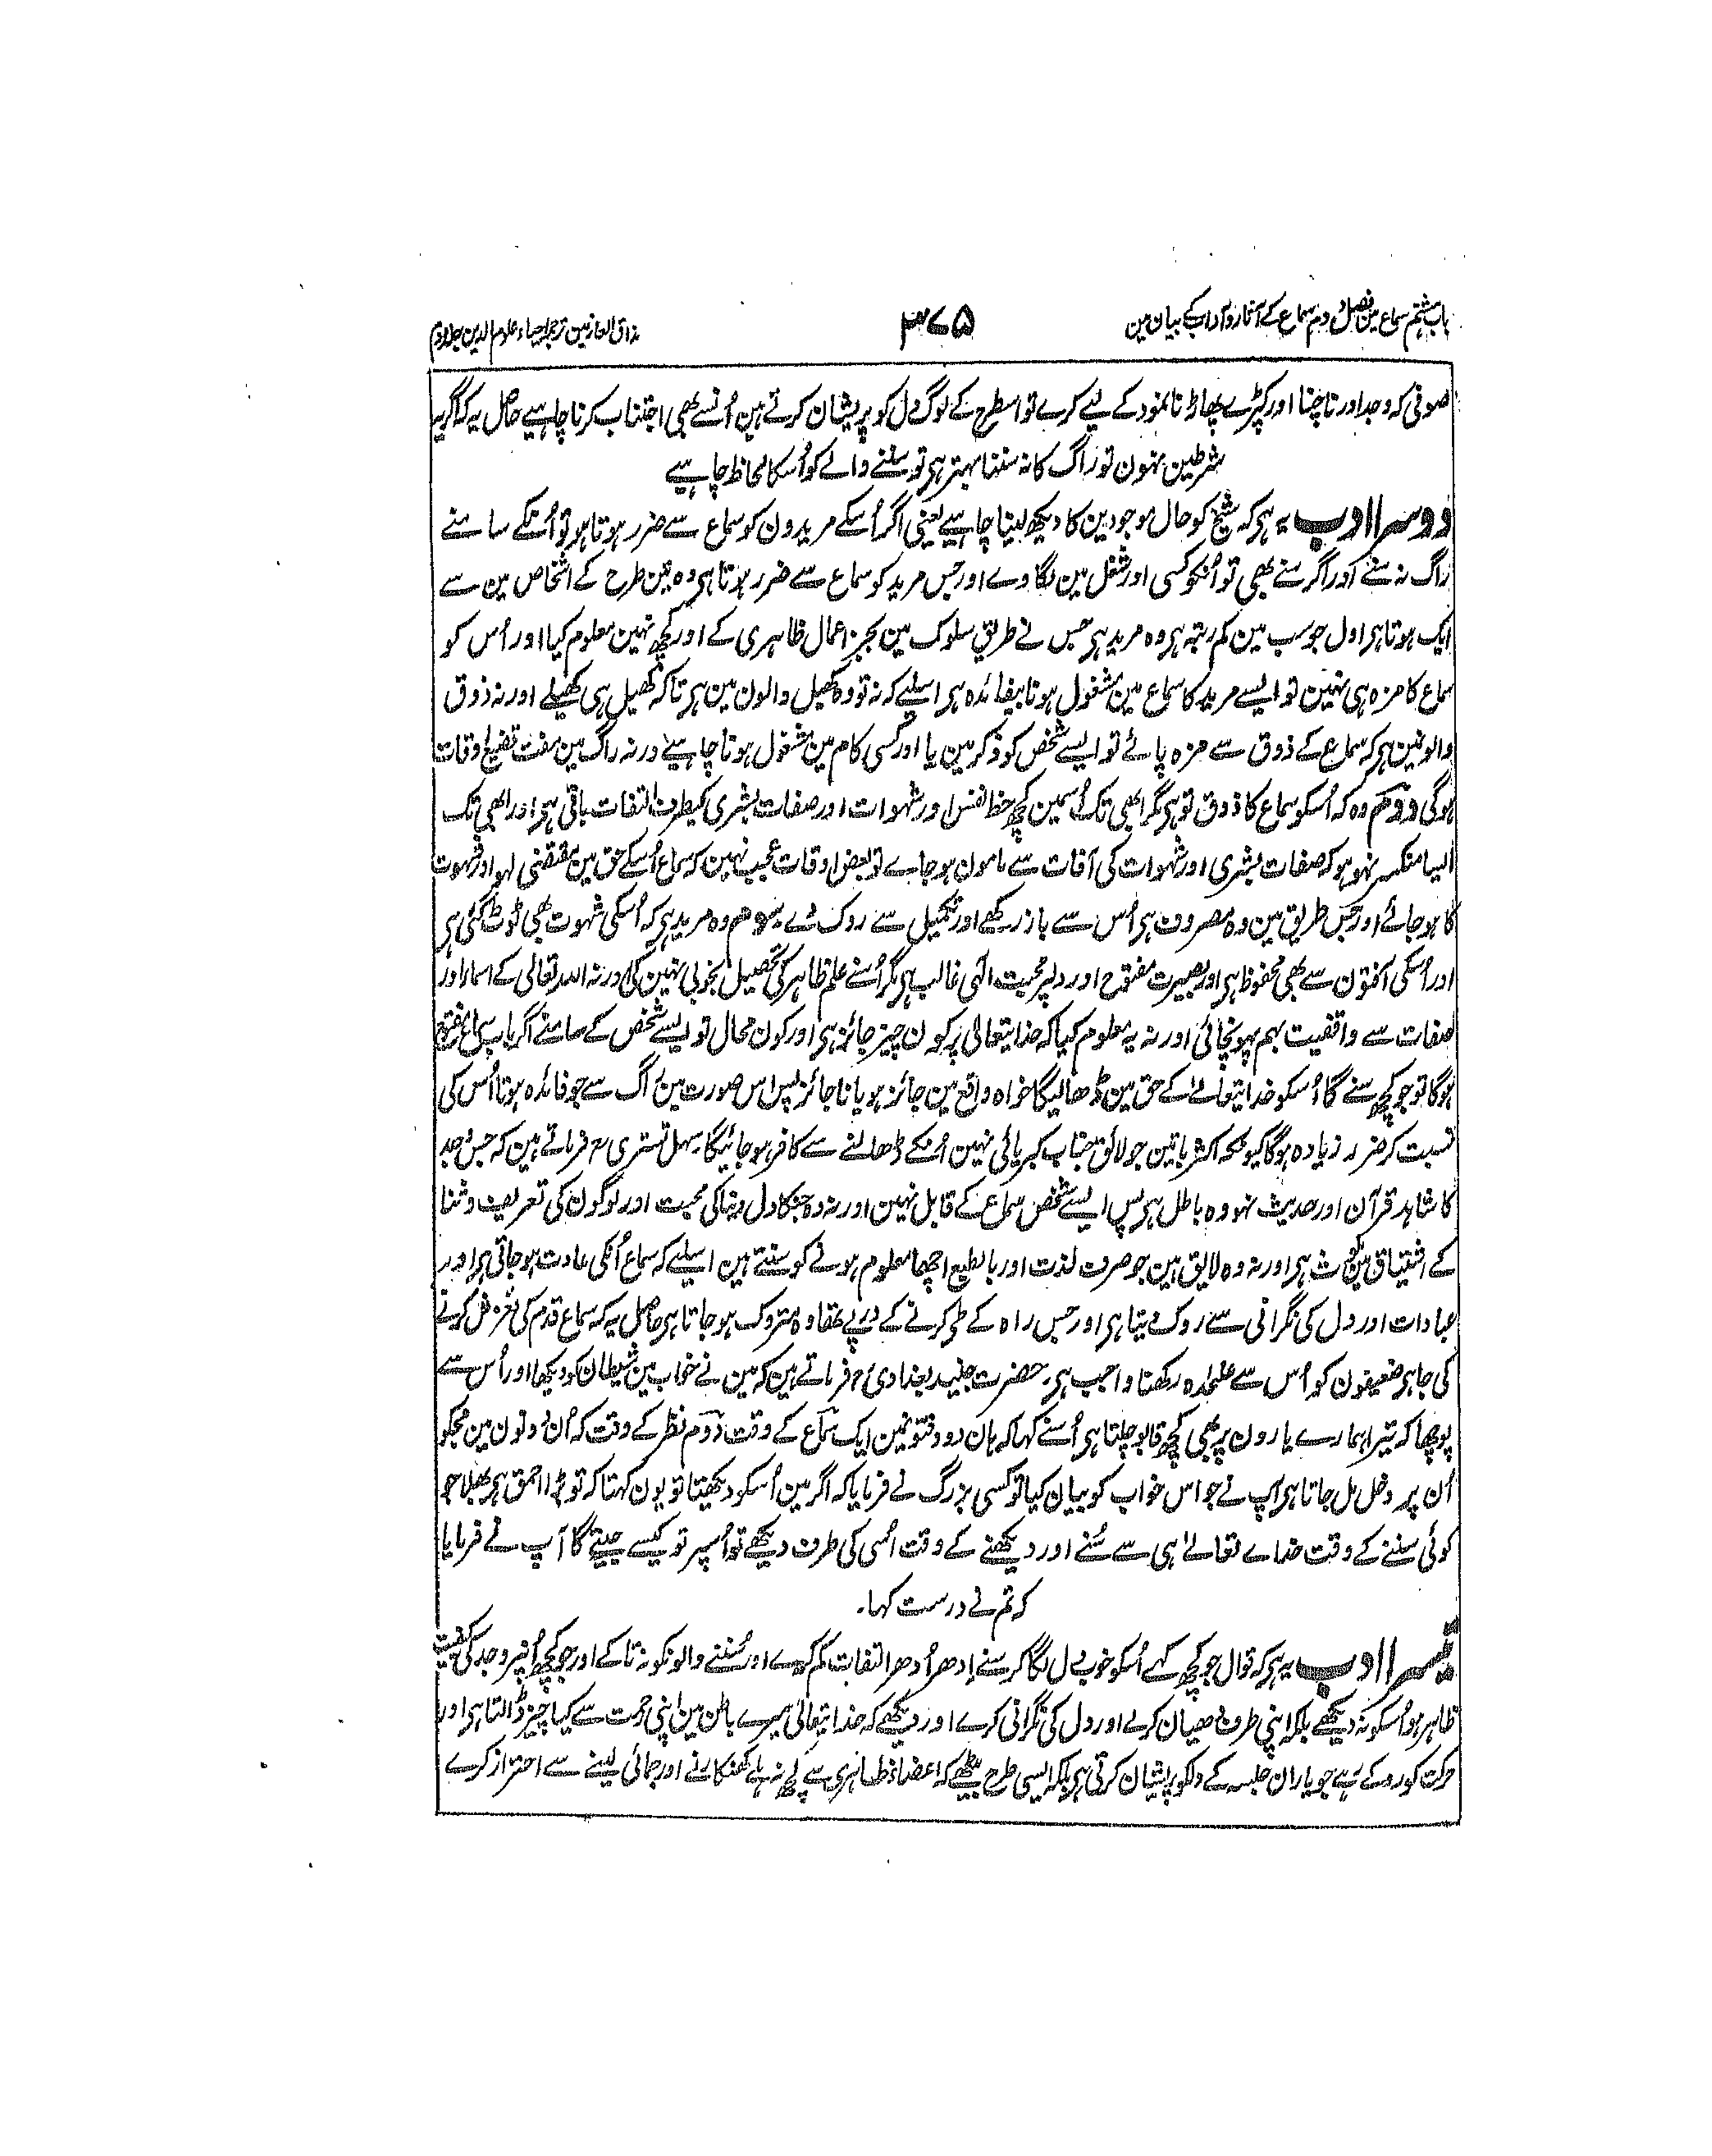 باب ہشتم سماع مین فصل دوم سماع کے آثار و آداب کے بیان مین
۳۷۵
مذاق العارفین ترجمہ احیاء علوم الدین جلد دوم
صوفی کہ وجد اور ناچنا اور کپڑے پھاڑنا نمود کے لیے کرے تو اسطرح کے لوگ دل کو پریشان کرتے ہین اُنسے بھی اجتناب کرنا چاہیے حاصل یہ کہ اگر یہ
شرطین نہون تو راگ کا نہ سننا بہتر ہی تو سننے والے کو اُسکا لحاظ چاہیے
دوسرا ادب یہ ہی کہ شیخ کو حال موجودین کا دیکھ لینا چاہیے یعنی اگر اُسکے مریدون کو سماع سے ضرر ہوتا ہو تو اُنکے سامنے
راگ نہ سنے اور اگر سنے بھی تو اُنکو کسی اور شغل مین لگا دے اور جس مرید کو سماع سے ضرر ہوتا ہی وہ تین طرح کے اشخاص مین سے
ایک ہوتا ہی اول جو سب مین کم رتبہ ہی وہ مرید ہی جس نے طریق سلوک مین بجز اعمال ظاہری کے اور کچھ نہین معلوم کیا اور اُس کو
سماع کا مزہ ہی نہین تو ایسے مرید کا سماع مین مشغول ہونا بیفائدہ ہی اسلیے کہ نہ تو وہ کھیل والون مین ہی تاکہ کھیل ہی کھیلے اور نہ ذوق
والونین ہی کہ سماع کے ذوق سے مزہ پائے تو ایسے شخص کو ذکر مین یا اور کسی کام مین مشغول ہونا چاہیے ورنہ راگ مین مفت تضیع اوقات
ہوگی دوم وہ کہ اُسکو سماع کا ذوق تو ہی مگر ابھی تک اُسمین کچھ حظ نفس اور شہوات اور صفات بشری کیطرف التفات باقی ہی اور ابھی تک
ایسا منکسر نہو ہو کہ صفات بشری اور شہوات کی آفات سے مامون ہو جاے تو بعض اوقات عجیب نہین کہ سماع اُسکے حق مین مقتضی لہو اور شہوت
کا ہو جائے اور جس طریق مین وہ مصروف ہی اُس سے باز رکھے اور تکمیل سے روک دے سوم وہ مرید ہی کہ اُسکی شہوت بھی ٹوٹ گئی ہی
اور اُسکی آفتون سے بھی محفوظ ہی اور بصیرت مفتوح اور دلپر محبت الٰہی غالب ہی مگر اُسنے علم ظاہر کی تحصیل بخوبی نہین کی اور نہ اللہ تعالی کے اسما اور
صفات سے واقفیت بہم پہونچائی اور نہ یہ معلوم کیا کہ خدا یتعالی پر کون چیز جائز ہی اور کون محال تو ایسے شخص کے سامنے اگر باب سماع مفتوح
ہوگا تو جو کچھ سنے گا اُسکو خدا یتعالے کے حق مین ڈھالیگا خواہ واقع مین جائز ہو یا ناجائز پس اس صورت مین راگ سے جو فائدہ ہوتا اُس کی
نسبت کر ضرر زیادہ ہوگا کیونکہ اکثر باتین جو لائق جناب کبریائی نہین اُنکے ڈھالنے سے کافر ہو جائیگا۔ سہل تستری رح فرماتے ہین کہ جس وجد
کا شاہد قرآن اور حدیث نہو وہ باطل ہی پس ایسے شخص سماع کے قابل نہین اور نہ وہ جنکا دل دنیا کی محبت اور لوگون کی تعریف و ثنا
کے اشتیاق مین ملوث ہی اور نہ وہ لایق ہین جو صرف لذت اور بالطبع اچھا معلوم ہونے کو سنتے ہین اسلیے کہ سماع اُنکی عادت ہو جاتی ہی اور
عبادات اور دل کی نگرانی سے روک دیتا ہی اور جس راہ کے طی کرنے کے درپے تھا وہ متروک ہو جاتا ہی حاصل یہ کہ سماع قدم کی لغزش کرنے
کی جا ہی ضعیفون کو اُس سے علٰحدہ رکھنا واجب ہی۔ حضرت جنید بغدادی رح فرماتے ہین کہ مین نے خواب مین شیطان کو دیکھا اور اُس سے
پوچھا کہ تیرا ہمارے یارون پر بھی کچھ قابو چلتا ہی اُسنے کہا کہ ہان دو وقتونمین ایک سماع کے وقت دوم نظر کے وقت کہ اُن دونون مین مجکو
اُن پر دخل مل جاتا ہی آپ نے جو اس خواب کو بیان کیا تو کسی بزرگ نے فرمایا کہ اگر مین اُسکو دیکھتا تو یون کہتا کہ تو بڑا احمق ہی بھلا جو
کوئی سننے کے وقت خداے تعالےٰ ہی سے سُنے اور دیکھنے کے وقت اُسی کی طرف دیکھے تو اُسپر تو کیسے جیتے گا آپ نے فرمایا
کہ تم نے درست کہا۔
تیسرا ادب یہ ہی کہ قوال جو کچھ کہے اُسکو خوب دل لگا کر سنے اِدھر اُدھر التفات کم کرے اور سُننے والونکو نہ تاکے اور جو کچھ اُنپر وجد کی کیفیت
ظاہر ہو اُسکو نہ دیکھے بلکہ اپنی طرف دھیان کرے اور دل کی نگرانی کرے اور دیکھے کہ خدا یتعالی میرے باطن مین اپنی رحمت سے کیا چیز ڈالتا ہی اور
حرکت کو روکے رہے جو یاران جلسہ کے دلکو پریشان کرتی ہی بلکہ ایسی طرح بیٹھے کہ اعضاء ظاہری سے کچھ نہ ہلے کھنکارنے اور جمائی لینے سے احتراز کرے